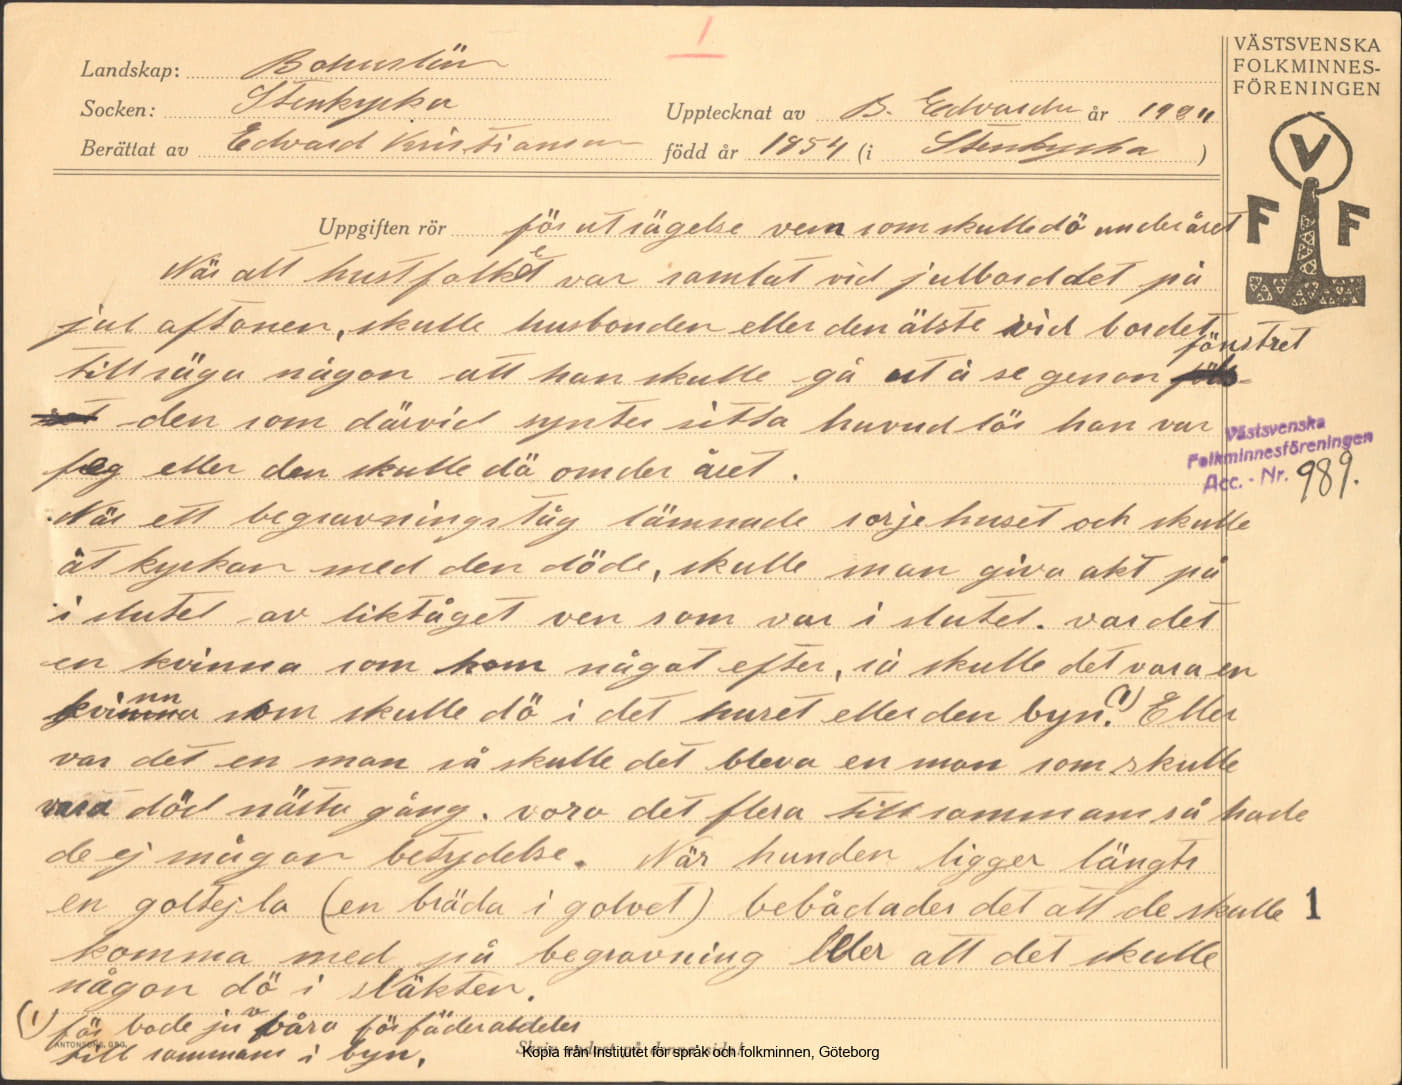 1
Landskap: Bohuslän
Socken: Stenkyrka
Upptecknat av B. Edvards år 1924
Berättat av Edvard Kristianson
född år 1854 (i Stenkyrka)
VÄSTSVENSKA
FOLKMINNES-
FÖRENINGEN
V
F F
Uppgiften rör förutsägelse vem som skulle dö under året
När alt hustfolket var samlat vid julborddet på
jul aftonen, skulle husbonden eller den älste vid bordet
tillsäga någon att han skulle gå ut å se genon fönstret
den som därvid syntes sitta huvudlös han var
feg eller den skulle dö omder året.
När ett begravningståg lämnade sorjehuset och skulle
åt kyrkan med den döde, skulle man giva akt på
i slutet av liktåget ven som var i slutet. var det
en kvinna som kom något efter, så skulle det vara en
kvinna som skulle dö i det huset eller den byn. (1) Eller
var det en man så skulle det bleva en man som skulle
vara död nästa gång. voro det flera tillsammans så hade
de ej någon betydelse. När hunden ligger längts
en goltejla (en bräda i golvet) bebådades det att de skulle
komma med på begravning eller att det skulle
någon dö i släkten.
(1) för bode ju våra förfäder alldeles
till sammans i byn.
Västsvenska
Folkminnesföreningen
Acc. - Nr. 989.
1
ANTONSONS, GBG.
Skriv endast på denna sida!
Kopia från Institutet för språk och folkminnen, Göteborg